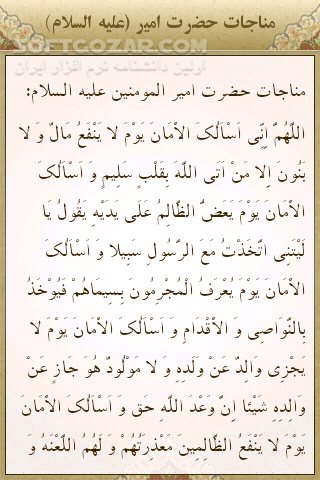 مناجات حضرت امیر (علیه السلام)
SOFTGOZAR.COM
اولین دانشنامه نرم افزار ایران
مناجات حضرت امیر المومنین علیه السلام:
اللَّهُمَّ اِنِّی اَسْاَلُکَ الْاَمَانَ یَوْمَ لَا یَنْفَعُ مَالٌ وَ لا
بَنُونَ اِلا مَنْ اَتَی اللَّهَ بِقَلْبٍ سَلِیمٍ وَ اَسْاَلُکَ
الْاَمَانَ یَوْمَ یَعَضُّ الظَّالِمُ عَلَی یَدَیْهِ یَقُولُ یَا
لَیْتَنِی اتَّخَذْتُ مَعَ الرَّسُولِ سَبِیلا وَ اَسْاَلُکَ
الْاَمَانَ یَوْمَ یُعْرَفُ الْمُجْرِمُونَ بِسِیمَاهُمْ فَیُوْخَذُ
بِالنَّوَاصِی وَ الْاَقْدَامِ وَ اَسْاَلُکَ الْاَمَانَ یَوْمَ لا
یَجْزِی وَالِدٌ عَنْ وَلَدِهِ وَ لا مَوْلُودٌ هُوَ جَازٍ عَنْ
وَالِدِهِ شَیْئًا اِنَّ وَعْدَ اللَّهِ حَق وَ اَسْاَلُکَ الْاَمَانَ
یَوْمَ لا یَنْفَعُ الظَّالِمِینَ مَعْذِرَتُهُمْ وَ لَهُمُ اللَّعْنَهُ وَ